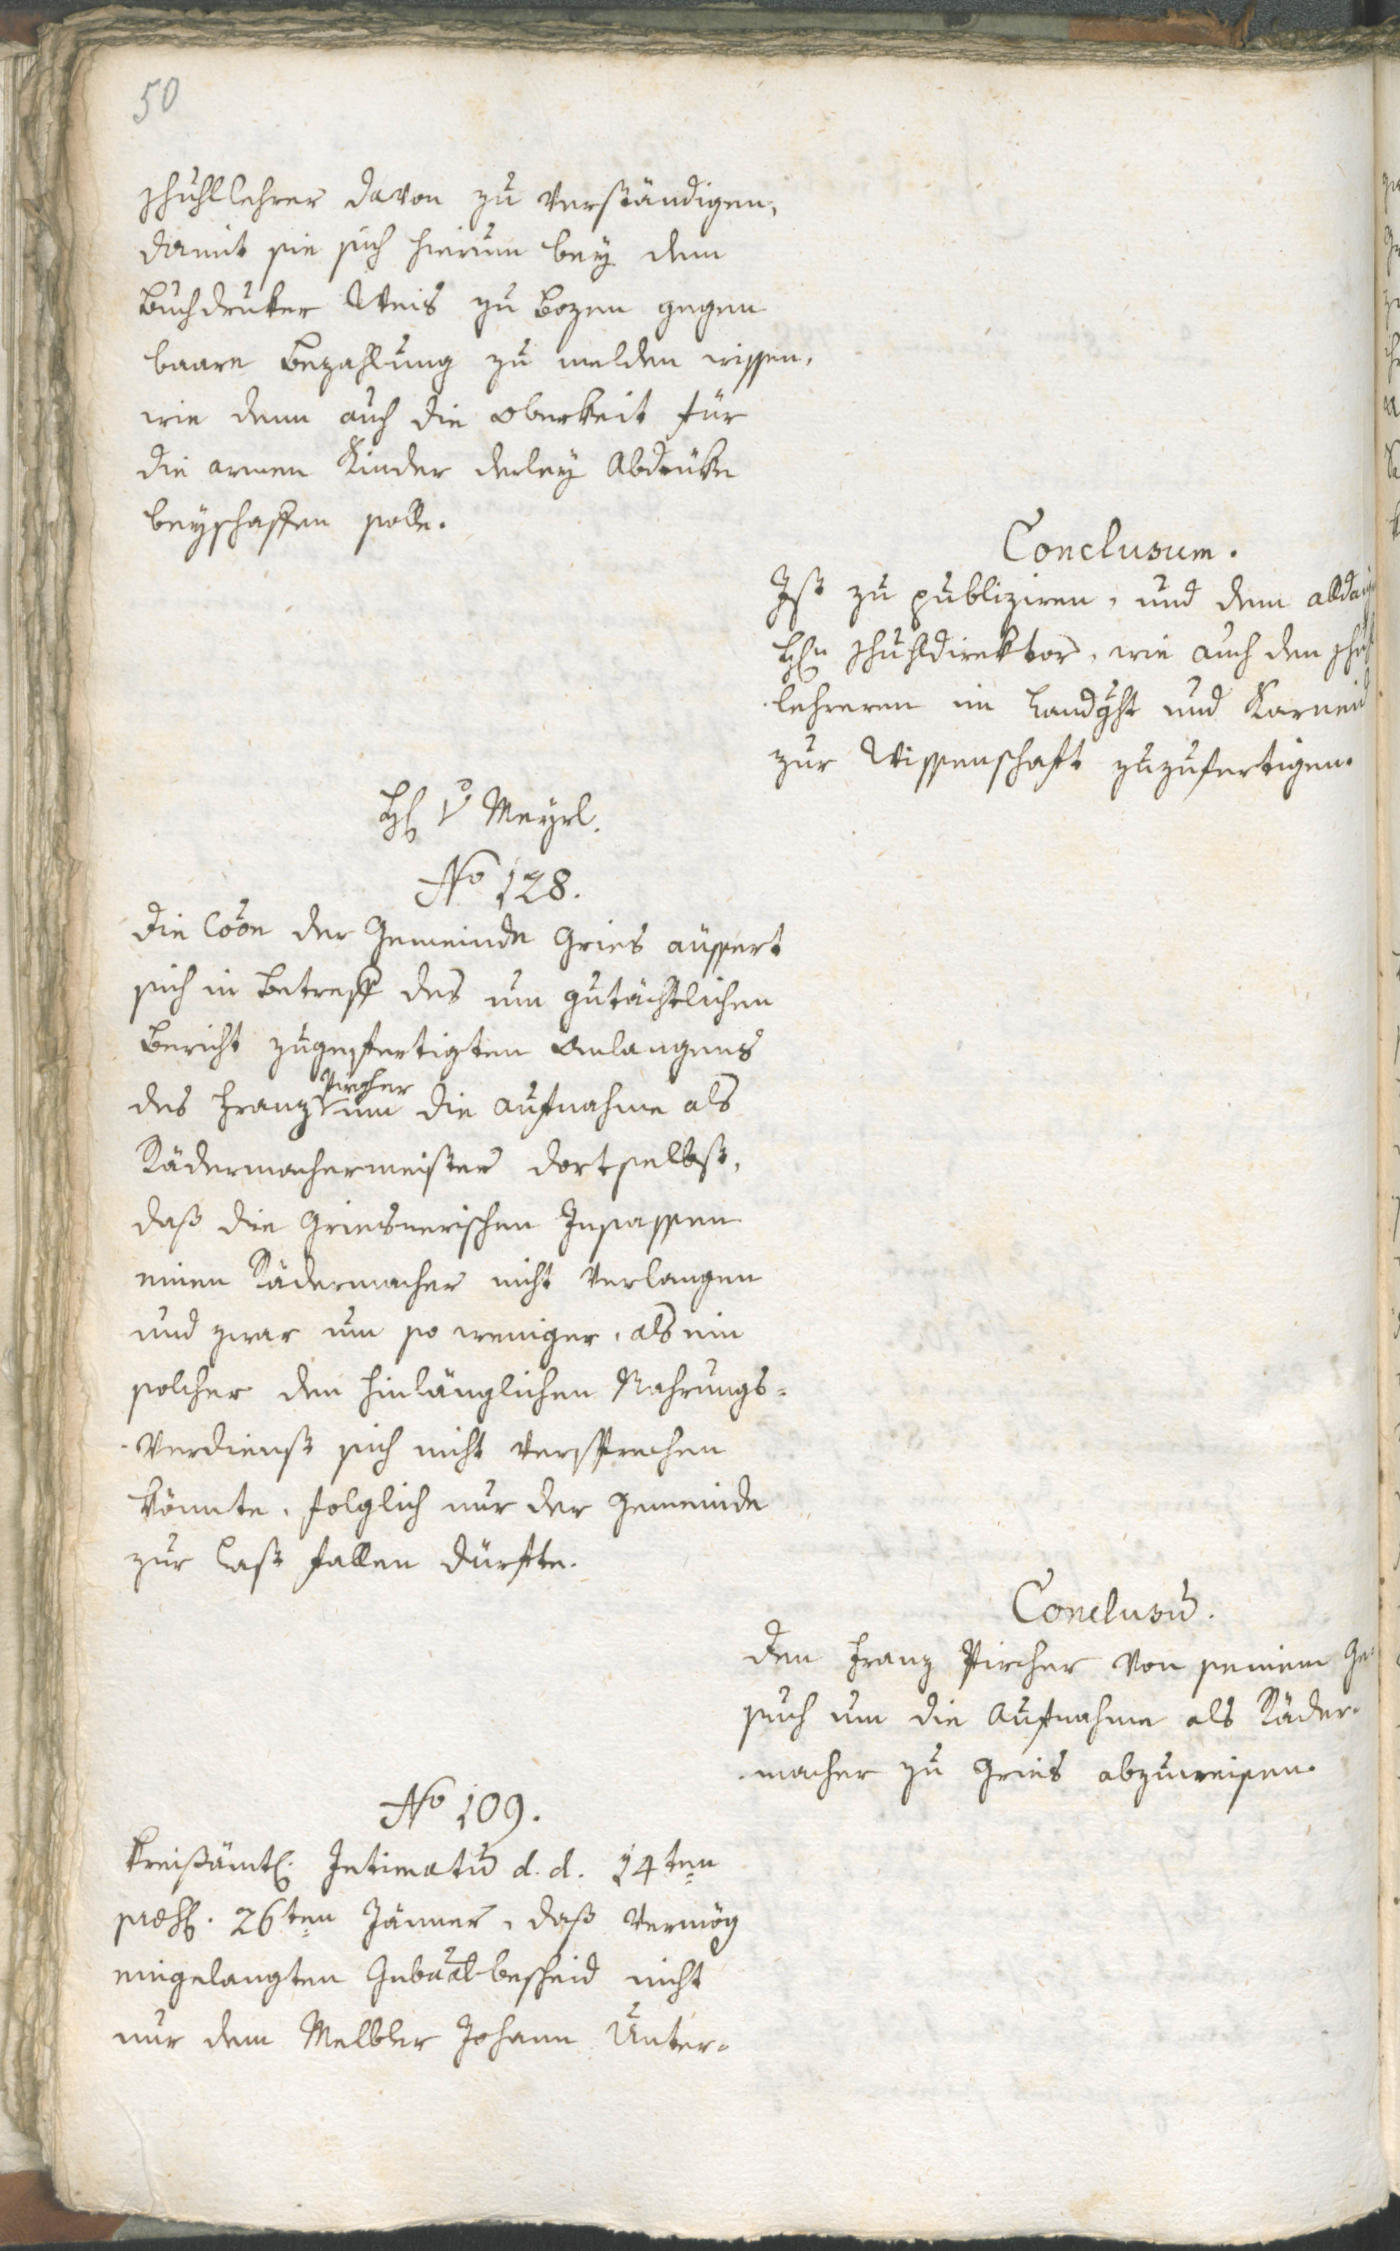 50
schuhllehrer davon zu verständigen,
damit sie sich hierum bey dem
Buchdruker Weis zu Bozen gegen
baare Bezahlung zu melden wissen,
wie denn auch die Oberkeit für
die armen Kinder derley Abdrüke
beyschaffen solle.
Conclusum.
Ist zu publiziren, und dem allda
Hℓn schuhldirektor, wie auch den schuhl
lehreren im Landght und Karneid
zur Wissenschaft zuzufertigen.
Hℓ v Meyrl.
No 128.
Die Coõn der Gemeinde Gries äussert
sich in Betreff des um gutächtlichen
Bericht zugefertigten Anlangens
des Franz Pircher um die Aufnahme als
Rädermachermeister dortselbst,
daß die Griesnerischen Insassen
einen Rädermacher nicht verlangen
und zwar um so weniger, als ein
solcher den hinlänglichen Nahrungs-
Verdienst sich nicht versprechen
könnte, folglich nur der Gemeinde
zur Last fallen dürfte.
Conclusũ.
Den Franz Pircher von seinem Ge-
such um die Aufnahme als Räder-
macher zu Gries abzuweisen.
No 109.
Kreisämtl. Intimatũ d. d. 14ten
præs. 26ten Jänner, daß vermög
eingelangten Gubãlbescheid nicht
nur dem Melbler Johann Unter-